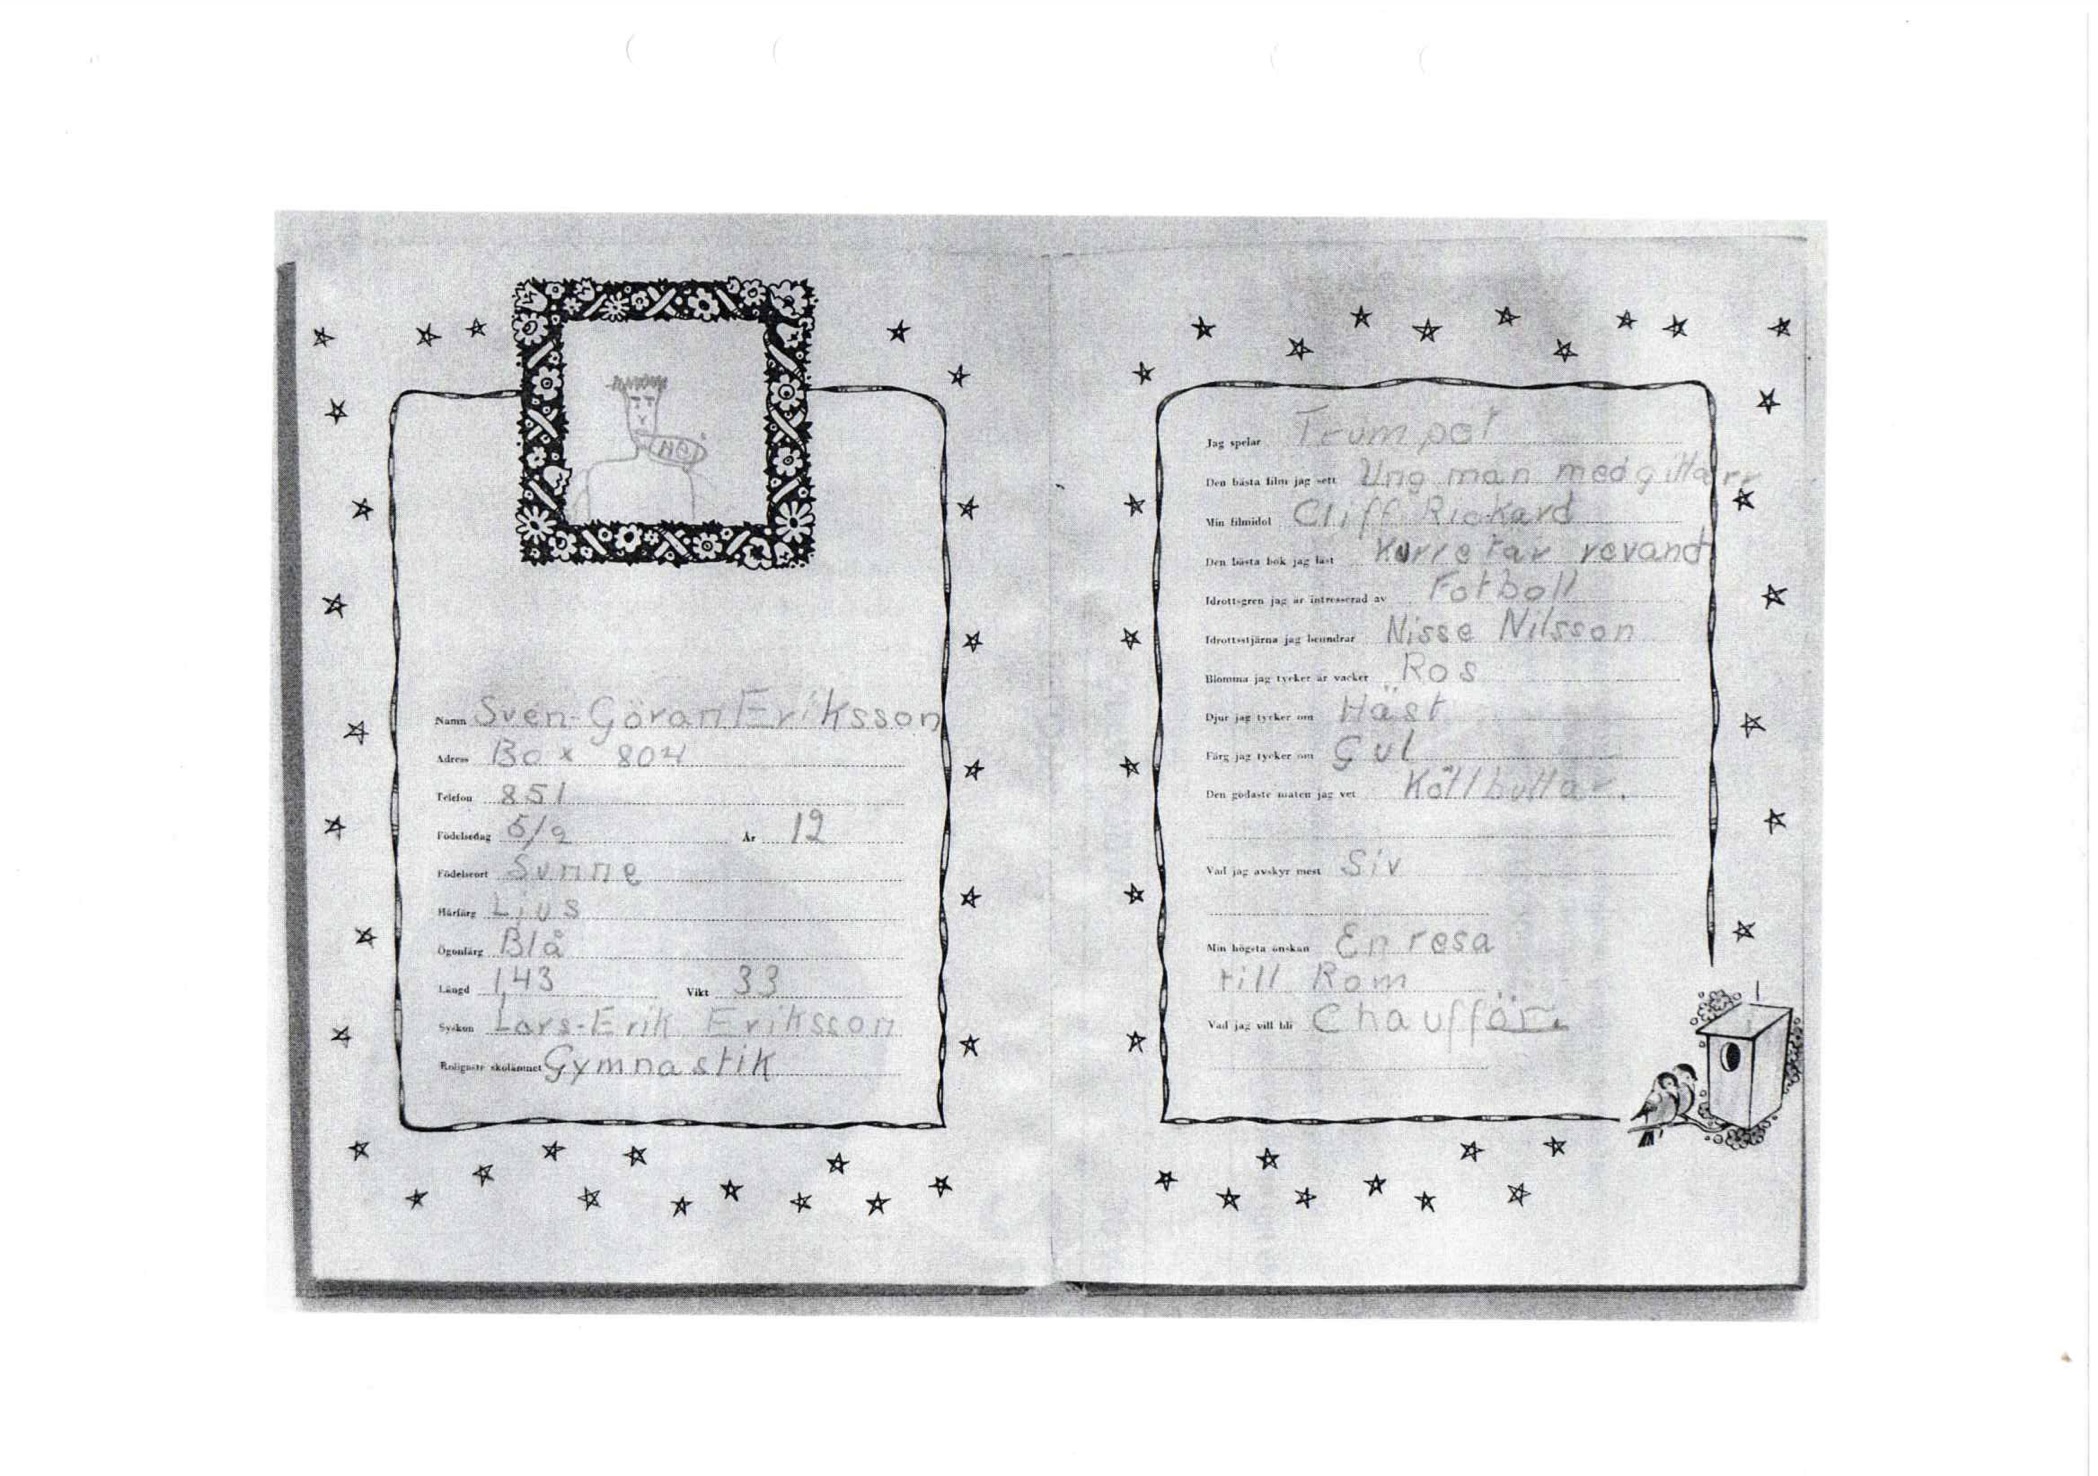 Nej
Namn Sven-Göran Eriksson
Adress Box 804
Telefon 851
Födelsedag 5/2 År 12
Födelseort Sunne
Hårfärg Ljus
Ögonfärg Blå
Längd 1,43 Vikt 33
Syskon Lars-Erik Eriksson
Roligaste skolämnet Gymnastik
Jag spelar Trumpet
Den bästa film jag sett Ung man med gittarr
Min filmidol Cliff Rickard
Den bästa bok jag läst Kurre tar revand
Idrottsgren jag är intresserad av Fotboll
Idrottsstjärna jag beundrar Nisse Nilsson
Blomma jag tycker är vacker Ros
Djur jag tycker om Häst
Färg jag tycker om Gul
Den godaste maten jag vet Köllbullar.
Vad jag avskyr mest Siv
Min högsta önskan En resa
till Rom
Vad jag vill bli Chaufför